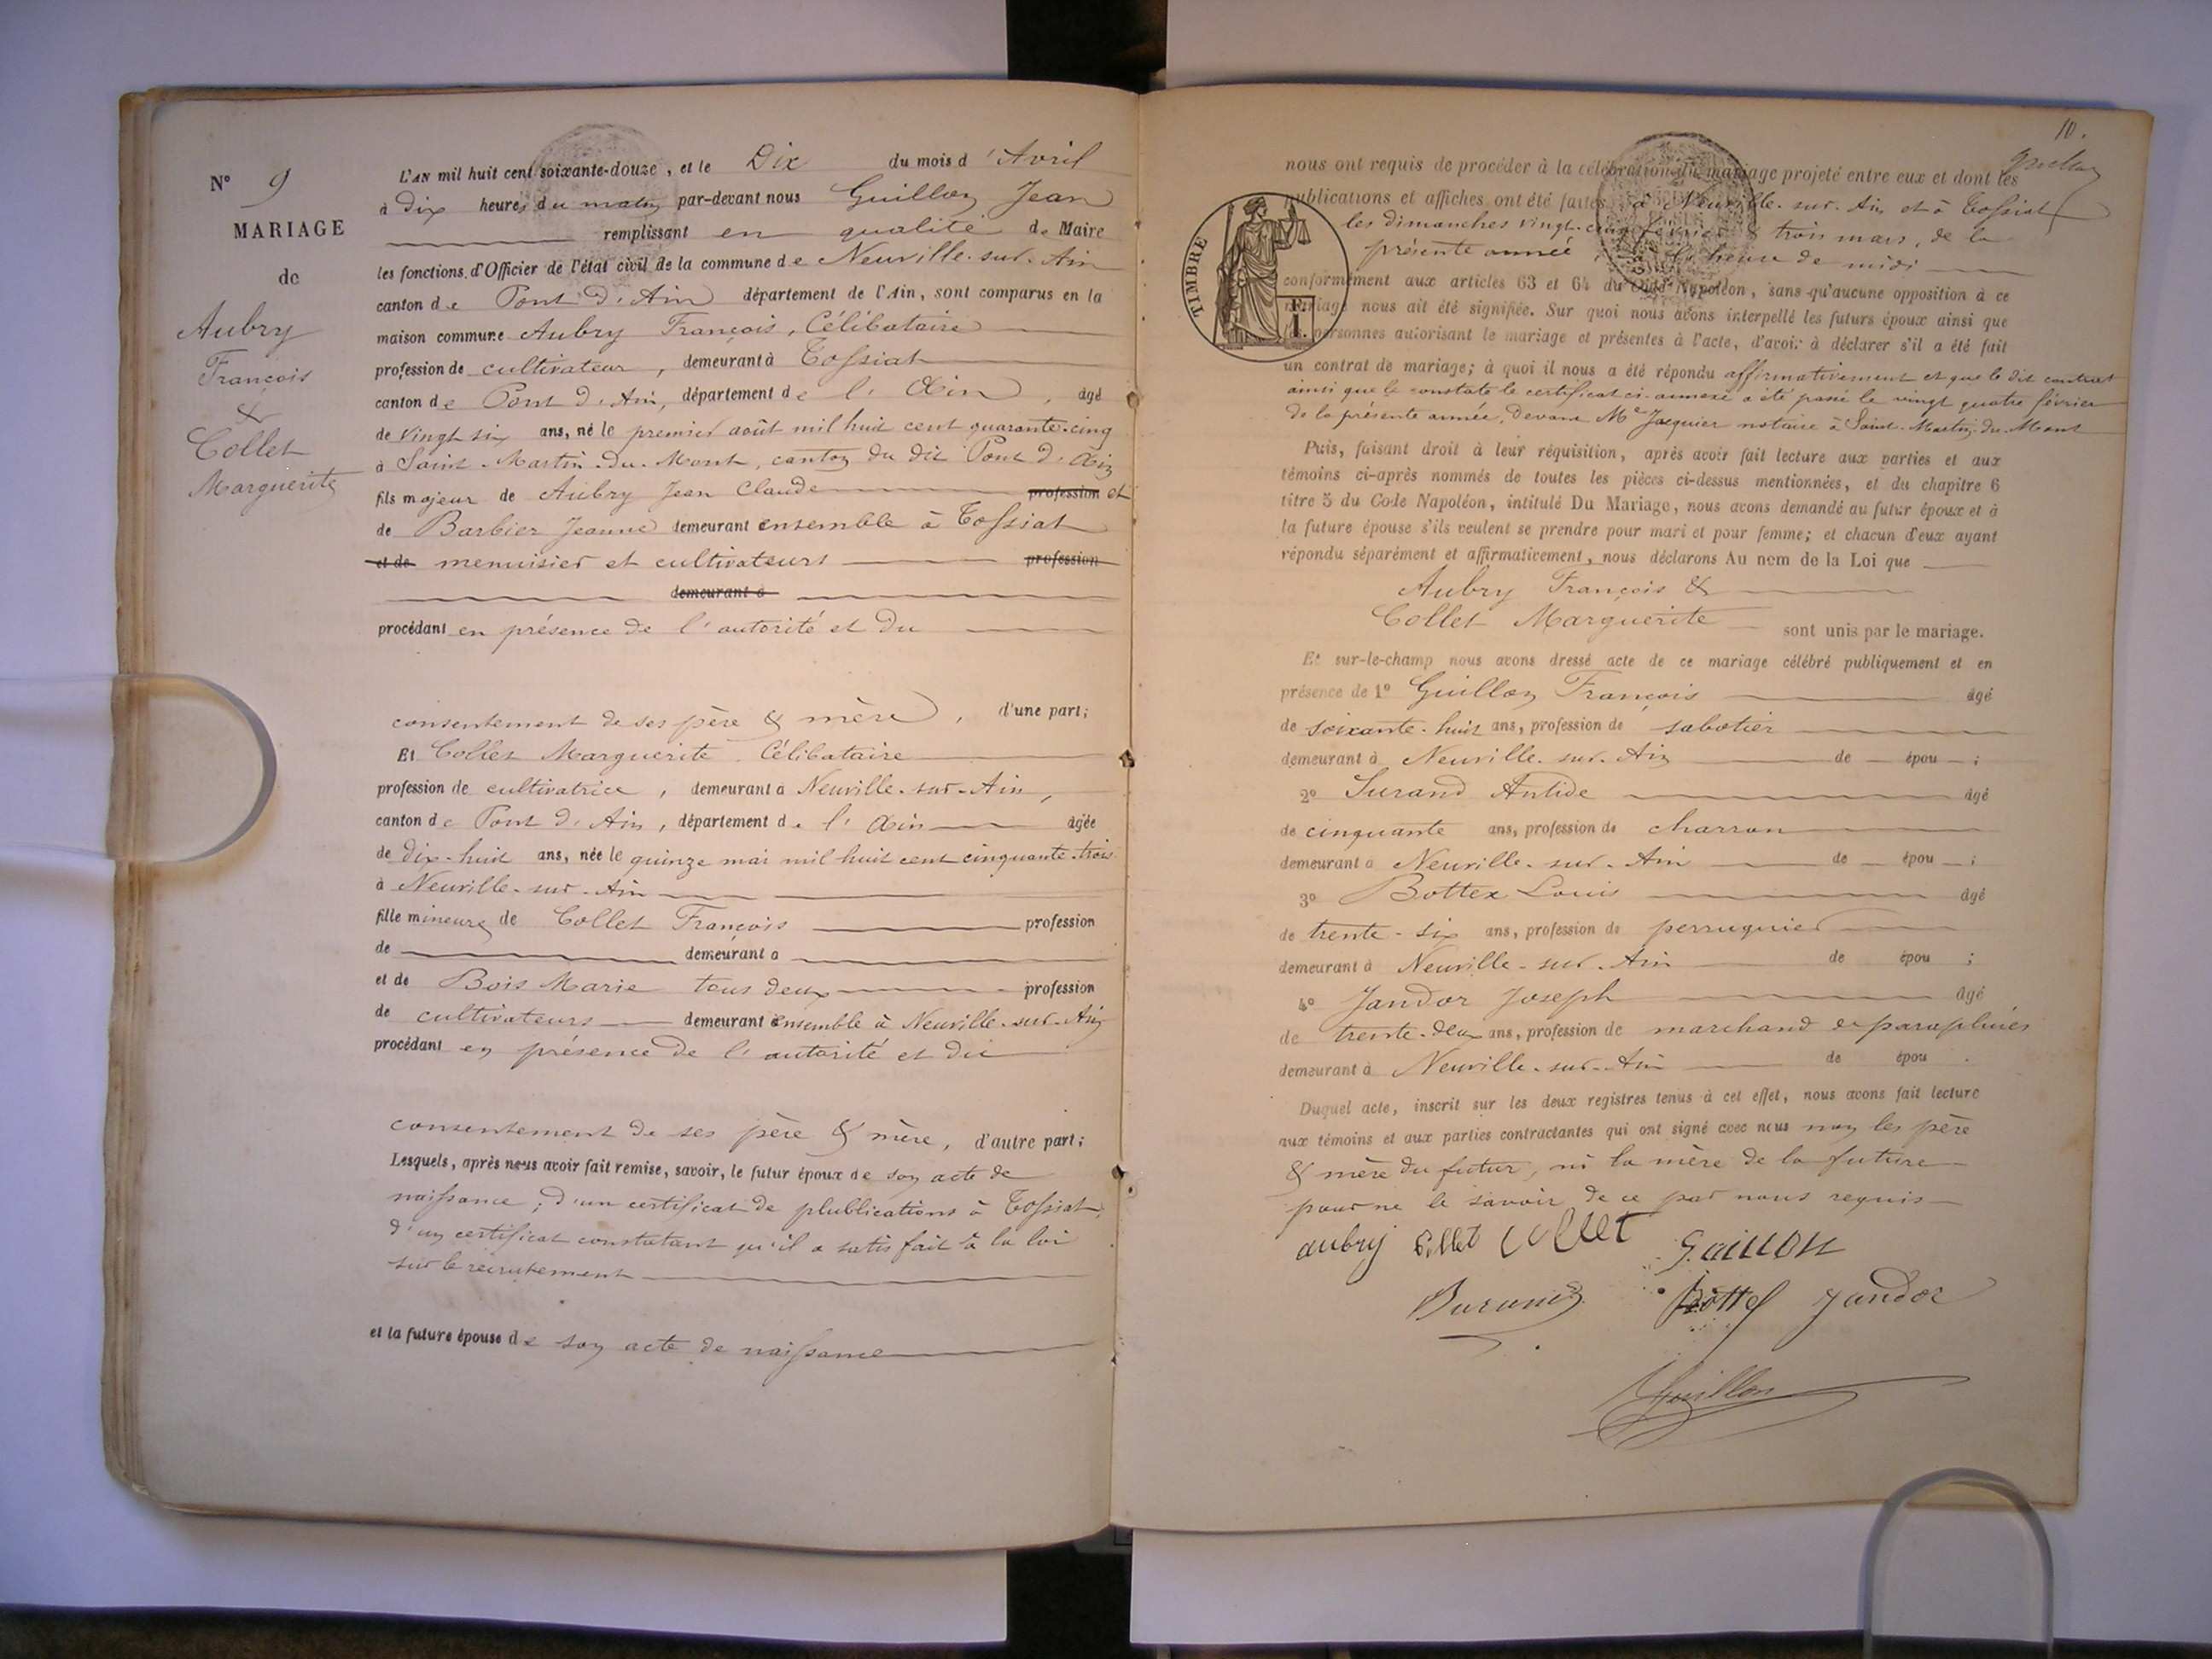 N° 9
MARIAGE
de
Aubry
François
&
Collet
Marguerite
L'AN mil huit cent soixante-douze, et le Dix du mois d'Avril
à dix heures du matin par-devant nous Guillon Jean
remplissant en qualité de Maire
les fonctions d'Officier de l'état civil de la commune de Neuville-sur-Ain
canton de Pont d'Ain département de l'Ain, sont comparus en la
maison commune Aubry François, Célibataire
profession de cultivateur, demeurant à Tossiat
canton de Pont d'Ain, département de l'Ain, âgé
de vingt six ans, né le premier août mil huit cent quarante-cinq
à Saint-Martin-du-Mont, canton du dit Pont d'Ain
fils majeur de Aubry Jean Claude profession et
de Barbier Jeanne demeurant ensemble à Tossiat
et de menuisier et cultivateurs profession
demeurant à
procédant en présence de l'autorité et du
consentement de ses père & mère, d'une part;
Et Collet Marguerite Célibataire
profession de cultivatrice, demeurant à Neuville-sur-Ain,
canton de Pont d'Ain, département de l'Ain âgée
de dix-huit ans, née le quinze mai mil huit cent cinquante-trois
à Neuville-sur-Ain
fille mineure de Collet François profession
de demeurant à
et de Bois Marie tous deux profession
de cultivateurs demeurant ensemble à Neuville-sur-Ain
procédant en présence de l'autorité et du
consentement de ses père & mère, d'autre part;
Lesquels, après nous avoir fait remise, savoir, le futur époux de son acte de
naissance; d'un certificat de plublications à Tossiat,
d'un certificat constatant qu'il a satisfait à la loi
sur le recrutement
et la future épouse de son acte de naissance
10.
nous ont requis de procéder à la célébration du mariage projeté entre eux et dont les
publications et affiches ont été faites à Neuville-sur-Ain et à Tossiat
les dimanches vingt-cinq février & trois mars, de la
présente année, heure de midi
conformément aux articles 63 et 64 du Code Napoléon, sans qu'aucune opposition à ce
mariage nous ait été signifiée. Sur quoi nous avons interpellé les futurs époux ainsi que
les personnes autorisant le mariage et présentes à l'acte, d'avoir à déclarer s'il a été fait
un contrat de mariage; à quoi il nous a été répondu affirmativement et que le dit contrat
ainsi que le constate le certificat ci-annexé a été passé le vingt quatre février
de la présente année, devant Me Jacquier notaire à Saint-Martin-du-Mont
TIMBRE
1F.
Puis, faisant droit à leur réquisition, après avoir fait lecture aux parties et aux
témoins ci-après nommés de toutes les pièces ci-dessus mentionnées, et du chapitre 6
titre 5 du Code Napoléon, intitulé Du Mariage, nous avons demandé au futur époux et à
la future épouse s'ils veulent se prendre pour mari et pour femme; et chacun d'eux ayant
répondu séparément et affirmativement, nous déclarons Au nom de la Loi que
Aubry François &
Collet Marguerite sont unis par le mariage.
Et sur-le-champ nous avons dressé acte de ce mariage célébré publiquement et en
présence de 1° Guillon François âgé
de soixante-huit ans, profession de sabotier
demeurant à Neuville-sur-Ain de épou ;
2° Surand Antide âgé
de cinquante ans, profession de charron
demeurant à Neuville-sur-Ain de épou ;
3° Bottex Louis âgé
de trente-six ans, profession de perruquier
demeurant à Neuville-sur-Ain de épou ;
4° Jandor Joseph âgé
de trente-deux ans, profession de marchand de parapluies
demeurant à Neuville-sur-Ain de épou .
Duquel acte, inscrit sur les deux registres tenus à cet effet, nous avons fait lecture
aux témoins et aux parties contractantes qui ont signé avec nous non les père
& mère du futur, ni la mère de la future
pour ne le savoir de ce par nous requis
aubry Collet Collet Guillon
Surand Bottex Jandor
Guillon